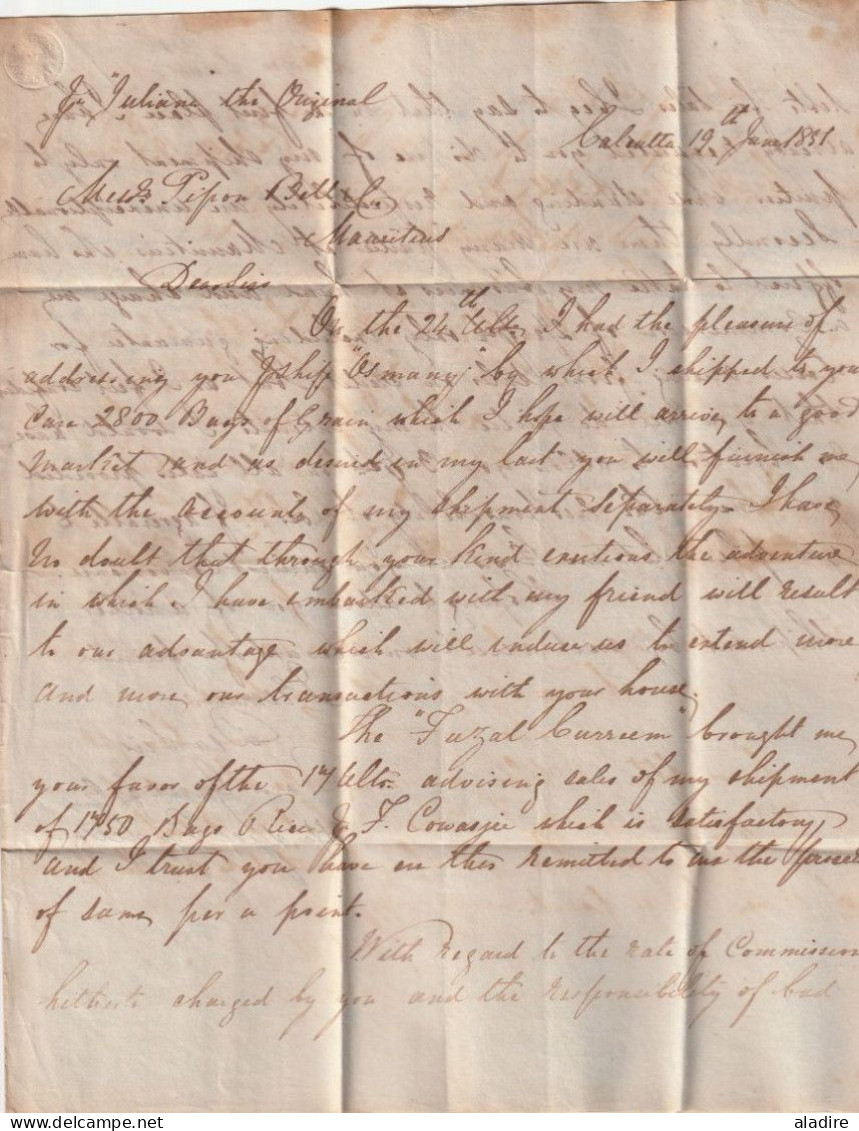 Pr "Juliana the Original
Calcutta 19th June 1851
Messrs Pipon Bell & Co.
Mauritius
Dear Sirs
On the 24th Ulto I had the pleasure of
addressing you Pship "Osmany" by which I shipped to you
Care 2800 Bags of Grain which I hope will arrive to a good
Market and as desired in my last you will furnish me
with the accounts of my shipment separately I have
no doubt that through your kind exertions the adventure
in which I have embarked with my friend will result
to our advantage which will induce us to extend more
and more our transactions with your house.
The "Fuzal Curreem" brought me
your favor of the 17 Ulto advising sales of my shipment
of 1750 Bags Rice P F. Cowasjee which is satisfactory
and I trust you have on this remitted to me the proceed
of same per a point.
With Regard to the rate of Commission
hitherto charged by you and the responsibility of bad
aladire